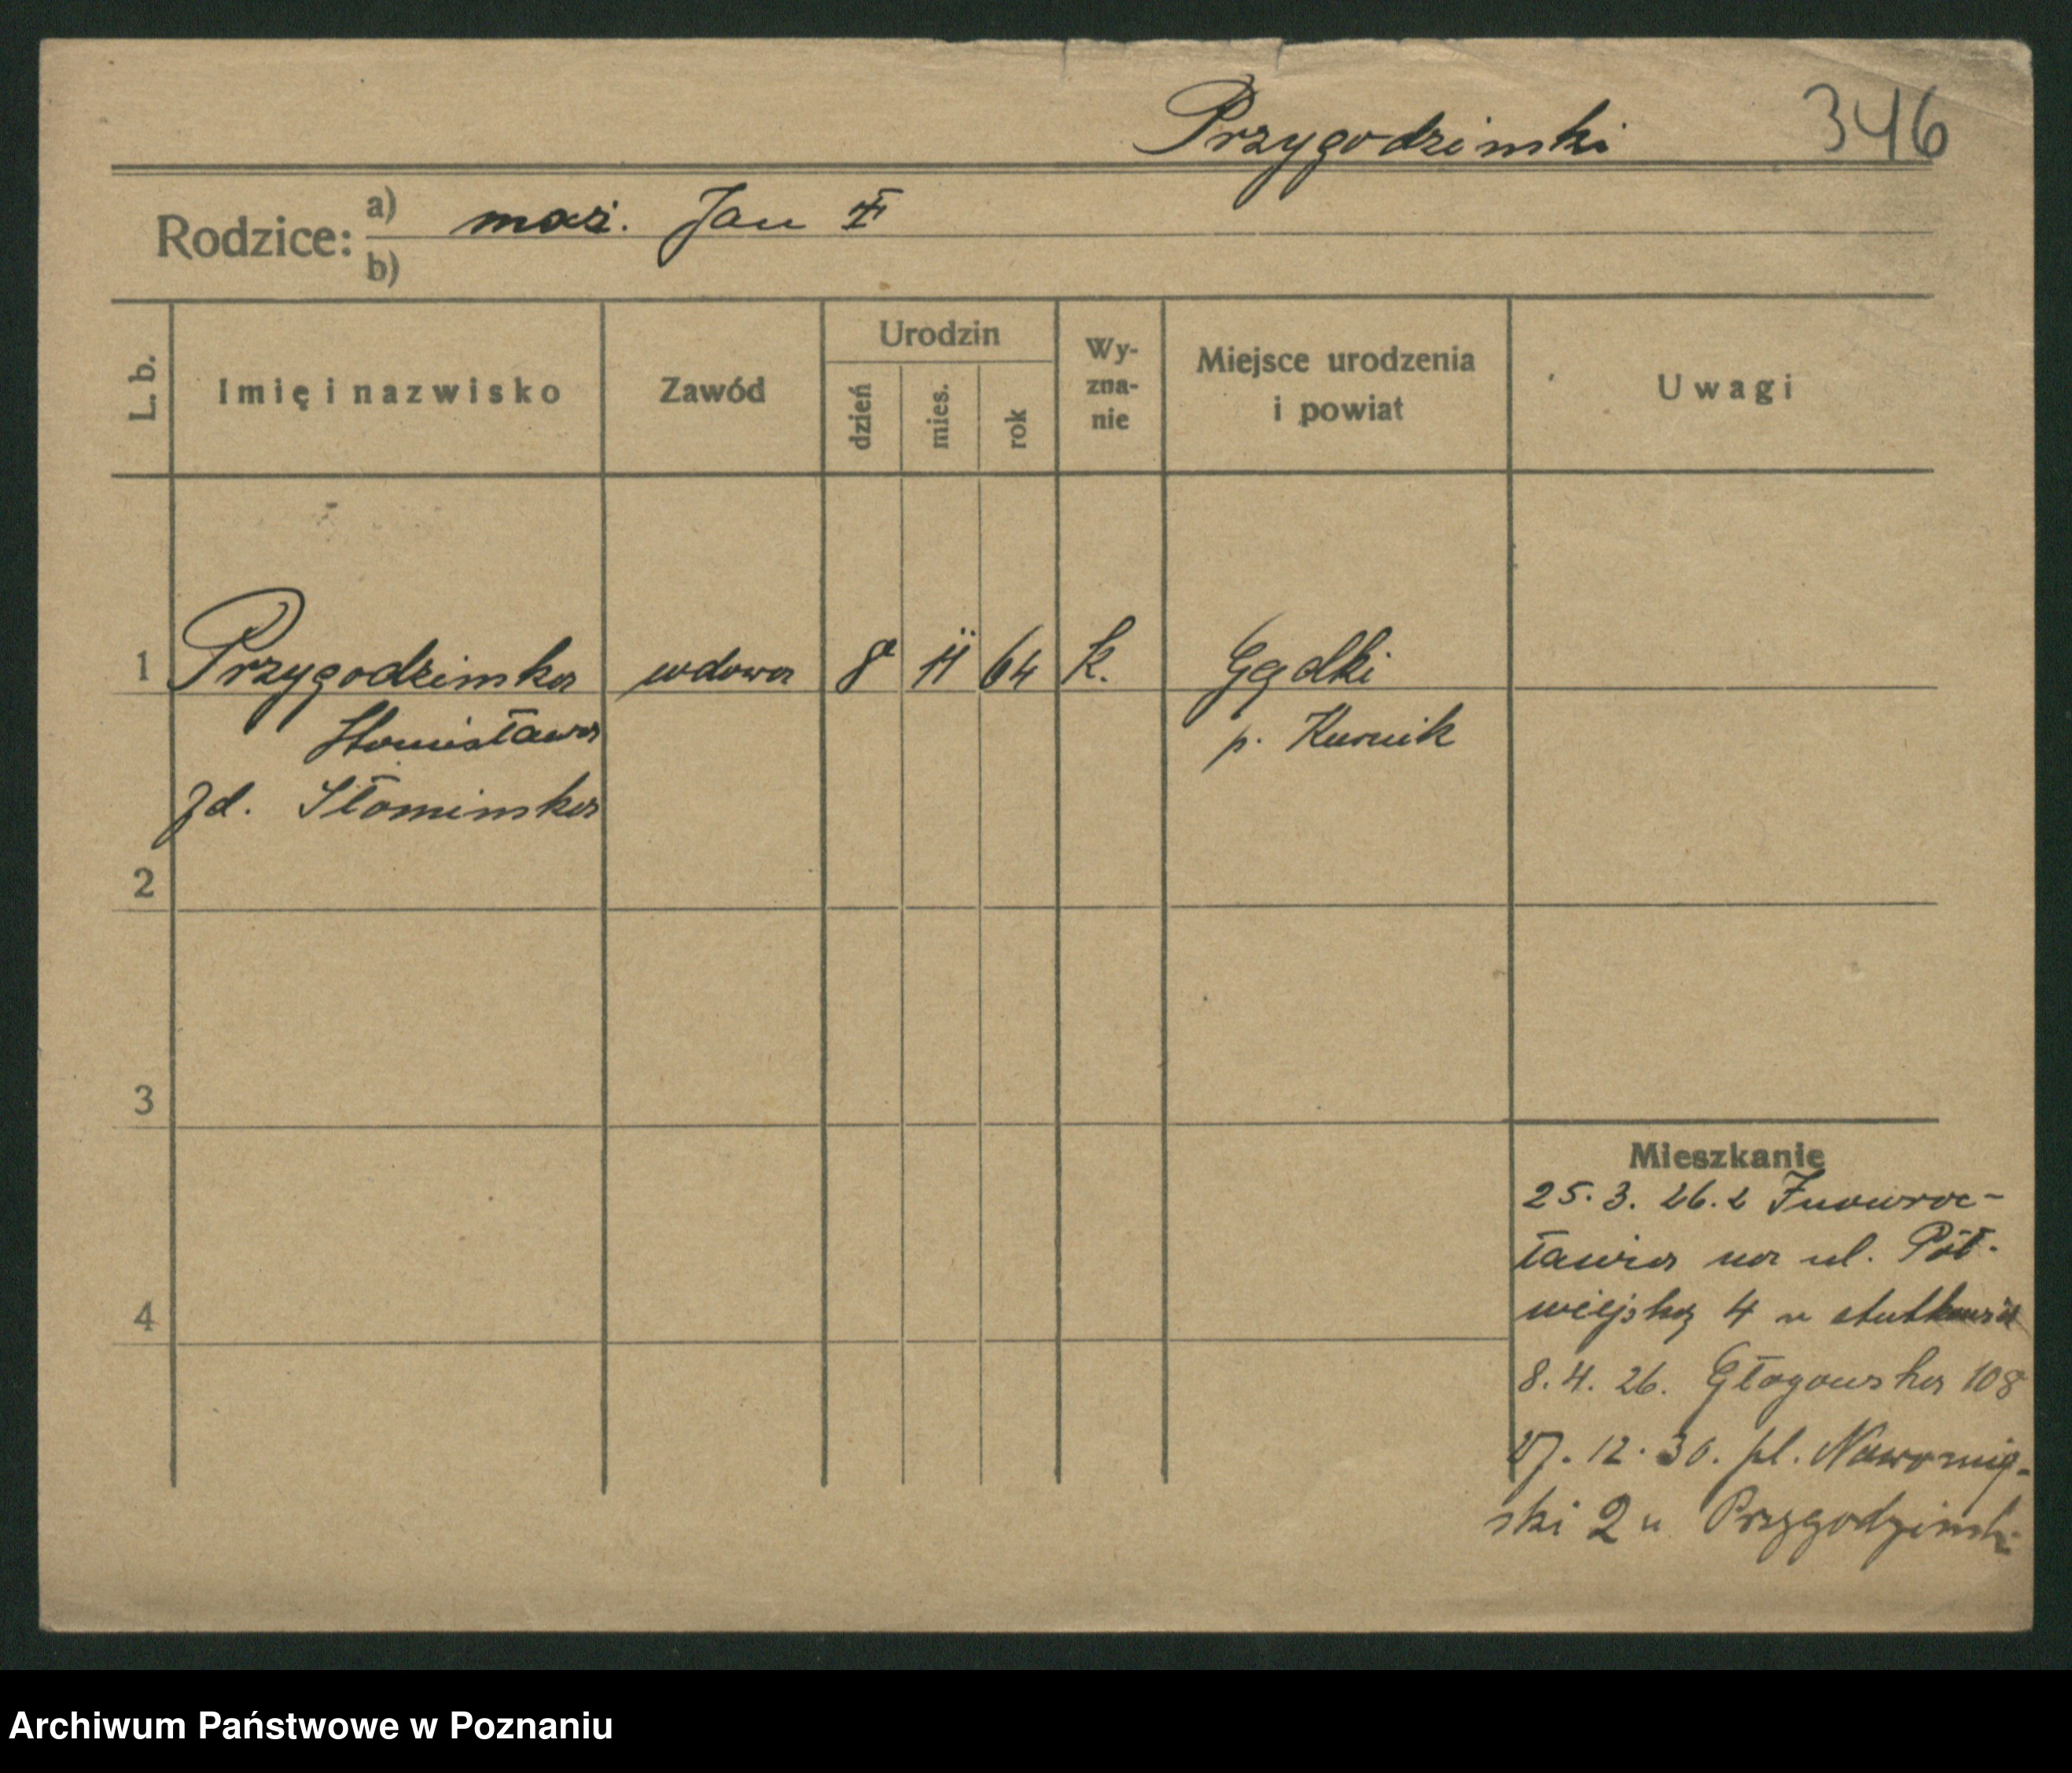 Przygodzinski 346
Rodzice: a) mąż. Jan
b)
L. b.
Imię i nazwisko
Zawód
Urodzin
dzień
mies.
rok
Wy-
zna-
nie
Miejsce urodzenia
i powiat
Uwagi
1 Przygodzinska wdowa 8 11 64 k. Gądki
Stanisława p. Kurnik
zd. Słominska
2
3
4
Mieszkanie
25. 3. 26. z Inowroc-
ławia na ul. Pół-
wiejską 4 u
8. 4. 26. Głogowska 108
27. 12. 30. pl. Nowomiej-
ski 2 u Przygodzinski
Archiwum Państwowe w Poznaniu